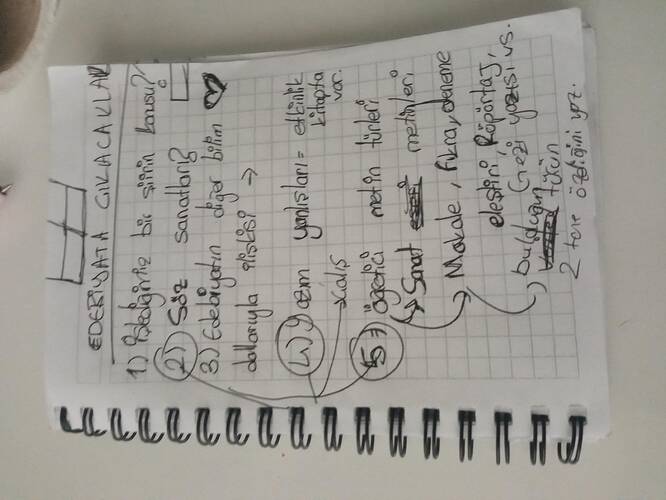 EDEBİYATA ÇIKACAKLAR
1) İstediğiniz bir şiirin konusu?
2) Söz sanatları?
3) Edebiyatın diğer bilim
dallarıyla ilişkisi →
4) Yazım yanlışları = etkinlik
kitapta
var.
5) öğretici metin türleri
↳ Sanat metinleri
Makale, fıkra, deneme
eleştiri, Röportaj,
Gezi yazısı vs.
bulduğun türün
2 tane özelliğini yaz.